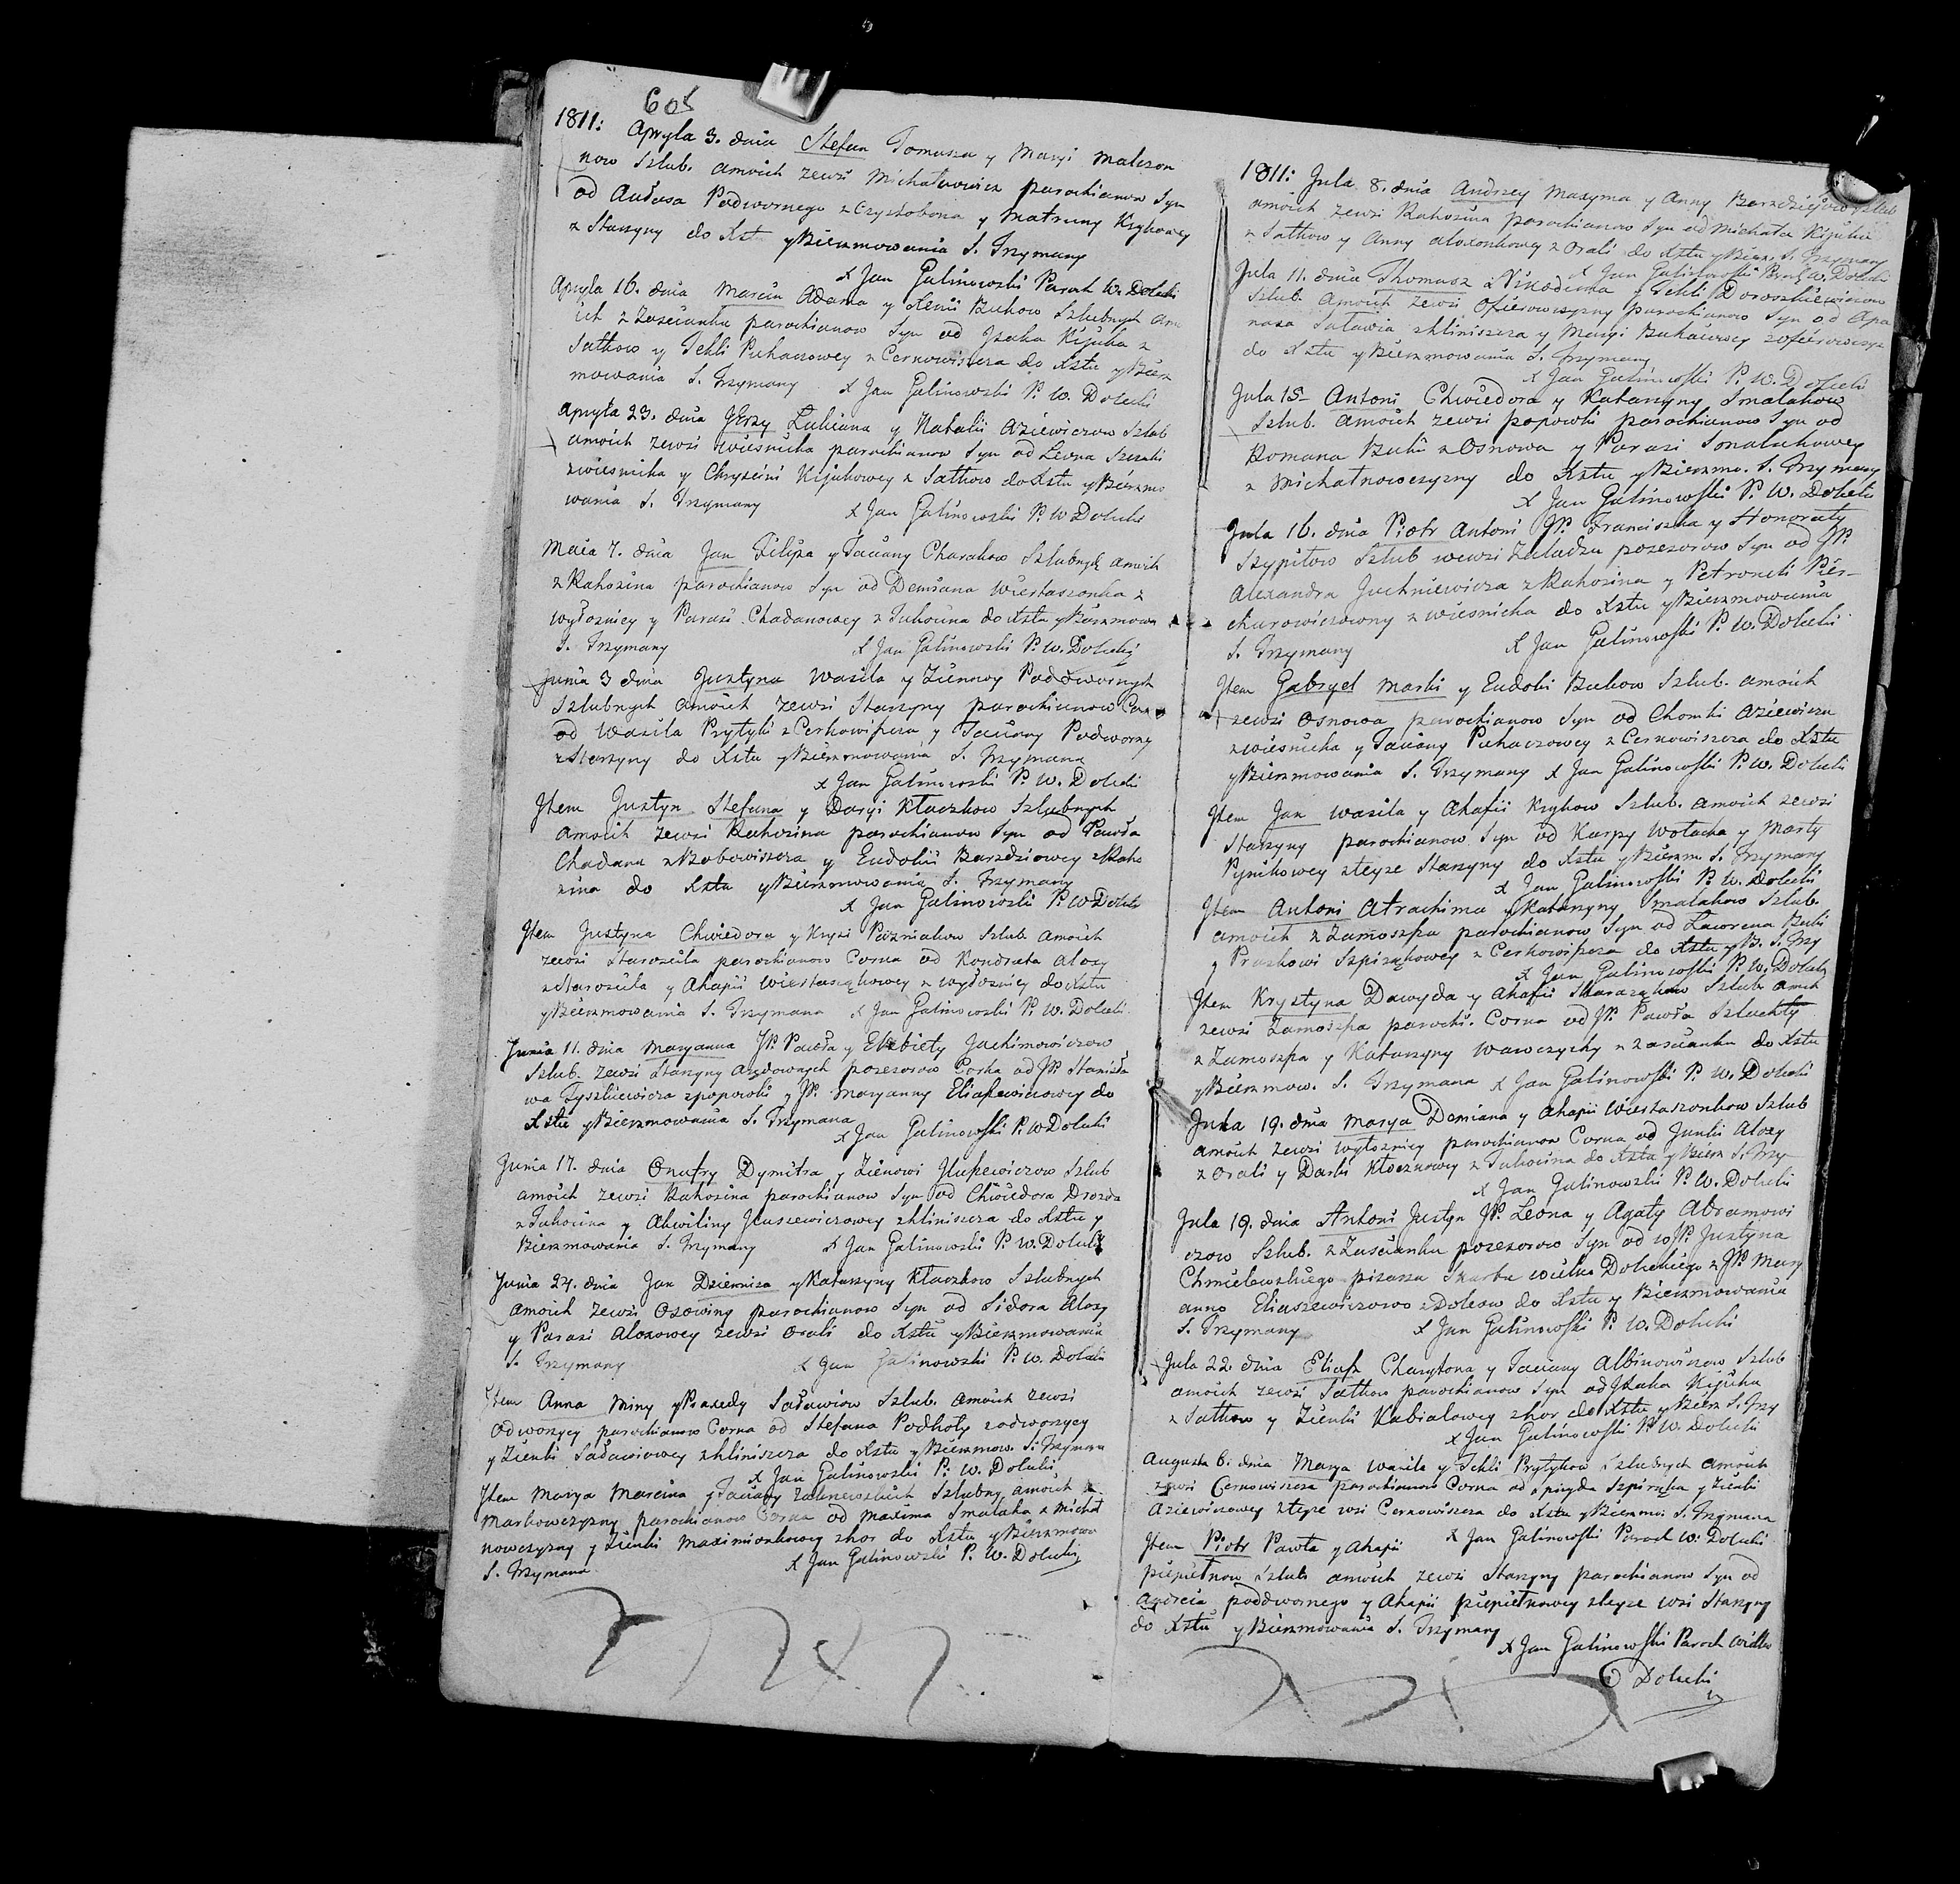 605
1811: Apryla 3. dnia Stefan Tomasza y Maryi Malzon
now Szlub. amoich zewsi Michałowicz parochianow Syn
od Audasa Podwornego z Czystobora y Matruny Krykowey
z Starzyny do Xstu y Bierzmowania S. Trzymany
X Jan Galinowski Paroch W. Dolecki
Apryla 16. dnia Marcin Adama y Xeni Bukow Szlubnych am
ich z Zascianku parochianow Syn od Jzaka Kijuka z
Satkow y Tekli Puhaczowey z Cernowiszcza do Xstu y Bierz
mowania S. Trzymany X Jan Galinowski P. W. Dolecki
Apryla 23. dnia Jerzy Łukiana y Natalii Aziewiczow Szlub
amoich zewsi wiesnicka parochianow Syn od Leona
zwiesnicka y Chryzcini Kijukowey z Satkow do Xstu y Bierzmo
wania S. Trzymany X Jan Galinowski P. W Dolecki
Maia 7. dnia Jan Filipa y Taciany Charakow Szlubnych amoich
z Rahozina parochianow Syn od Demiana Wiertaszonka z
wytoznicy y Parasi Chadanowey z Tuhocina do Xstu y Bierzmowa
S. Trzymany X Jan Galinowski P. W. Dolecki
Junia 3 dnia Justyna Wasila y Ziennoy Podwornych
Szlubnych amoich zewsi Starzyny parochianow Cora
od Wasila Prytyki z Cerkowiszcza y Taciany Podworney
z Starzyny do Xstu y Bierzmowania S. Trzymana
X Jan Galinowski P. W. Dolecki
Jtem Justyn Stefana y Daryi Kłaczkow Szlubnych
amoich zewsi Rahozina parochianow Syn od Pawła
Chadana z Bobowiszcza y Eudokii Barzdziowey z Raho
zina do Xstu y Bierzmowania S. Trzymany
X Jan Galinowski P. W Dolecki
Jtem Justyna Chwiedora y Krysi Pazniakow Szlub. amoich
zewsi Starosiela parochianow Corua od Kondrata Alozy
z Starosiela y Ahapii Wiertaszonkowey z wytoznicy do Xstu
y Bierzmowania S. Trzymana X Jan Galinowski P. W. Dolecki
Junia 11. dnia Maryanna JP. Pawła y Elzbiety Jachimowiczow
Szlub. zewsi Starzyny arędownych posesorow Corka od JP. Stanisła
wa Tyszkiewicza zpopowki y JP. Maryanny Eliaszewiczowey do
Xstu y Bierzmowania S. Trzymana
X Jan Galinowski P. W Dolecki
Junia 17. dnia Onufry Dymitra y Zienowi Jluszewiczow Szlub
amoich zewsi Rahozina parochianow Syn od Chwiedora Drozda
z Tuhocina y Akwiliny Jluszewiczowey zkliniszcza do Xstu y
Bierzmowania S. Trzymany X Jan Galinowski P. W. Dolecki
Junia 24. dnia Jan Dziemisa y Katarzyny Kłaczkow Szlubnych
amoich zewsi Osowiny parochianow Syn od Sidora Alozy
y Parasi Alozowey zewsi Orali do Xstu y Bierzmowania
S. Trzymany X Jan Galinowski P. W. Dolecki
Jtem Anna Miny y Praxedy Saławiow Szlub. amoich zewsi
Odworzycy parochianow Corua od Stefana Podhoły zodworzycy
y Zienki Saławiowey zkliniszcza do Xstu y Bierzmow. S. Trzymana
X Jan Galinowski P. W. Dolecki
Jtem Marya Marcina y Taciany Szlubny. amoich z
Markowczyzny parochianow Corua od Maxima Smalaka z Michał
nowczyzny y Zienki Maximionkowey zhor do Xstu y Bierzmowa
S. Trzymana X Jan Galinowski P. W. Dolecki
1811: Jula 8. dnia Andrzey Maxyma y Anny Barzdziejow Szlub
amoich zewsi Rahozina parochianow Syn od Michała Kijuka
z Satkow y Anny alozonkowey z Orali do Xstu y Bierz. S. Trzymany
X Jan Galinowski Paroch W. Dolecki
Jula 11. dnia Thomasz Nikodima y Tekli Doroszkiewiczow
Szlub. amoich zewsi Oficerowszyzny parochianow Syn od Apa
nasa Saławia zkliniszcza y Maryi Bukaiowey
do Xstu y Bierzmowania S. Trzymany
X Jan Galinowski P. W. Dolecki
Jula 15 Antoni Chwiedora y Katarzyny Smalakow
Szlub. amoich zewsi popowki parochianow Syn od
Romana Buki z Osnowa y Parasi Smalakowey
z Michałnowczyzny do Xstu y Bierzmo. S. Trzymany
X Jan Galinowski P. W. Dolecki
Jula 16. dnia Piotr Antoni JP. Franciszka y Honoraty
Szypiłow Szlub wewsi Zaladzu posesorow Syn od JP.
Alexandra Juchniewicza z Rahozina y Petroneli Pie-
charowiczowny z wiesnicka do Xstu y Bierzmowania
S. Trzymany X Jan Galinowski P. W. Dolecki
Jtem Gabryel Marki y Eudoki Bukow Szlub. amoich
zewsi Osnowa parochianow Syn od Chomki Aziewicza
zwiesnicka y Taciany Puhaczowey z Cernowiszcza do Xstu
y Bierzmowania S. Trzymany X Jan Galinowski P. W. Dolecki
Jtem Jan Wasila y Ahafii Krykow Szlub. amoich zewsi
Starzyny parochianow Syn od Karpy Wołacka y Marty
Pynikowey zteyze Starzyny do Xstu y Bierzm. S. Trzymany
X Jan Galinowski P. W. Dolecki
Jtem Antoni Atrachima y Katarzyny Smalakow Szlub.
amoich z Zamoszza parochianow Syn od Ławrena Buki
y Praskowi Szpirąkowey z Cerkowiszcza do Xstu y B. S. Trzy
X Jan Galinowski P. W. Dolecki
Jtem Krystyna Dawyda y Ahafii Skarazkow Szlub. amoich
zewsi Zamoszza paroch. Corua od JP. Pawła Szluchty
z Zamoszza y Katarzyny Wawrzycky z Zascianku do Xstu
y Bierzmow. S. Trzymana X Jan Galinowski P. W. Dolecki
Jula 19. dnia Marya Demiana y Ahapii Wiertaszonkow Szlub
amoich zewsi Wytoznicy parochianow Corua od Junki Alozy
z Orali y Darki Kłoczkowey z Tuhocina do Xstu y Bierz S. Trzy-
X Jan Galinowski P. W. Dolecki
Jula 19. dnia Antoni Justyn JP. Leona y Agaty Abramowi
czow Szlub. z Zascianku posesorow Syn od WJP. Justyna
Chmielewskiego pisarza Skarbu wielko Doleckiego z JP. Mary
anno Eliaszewiczowo z Dolcow do Xstu y Bierzmowania
S. Trzymany X Jan Galinowski P. W. Dolecki
Jula 22. dnia Eliasz Charytona y Taciany Albinowiczow Szlub
amoich zewsi Satkow parochianow Syn od Jzaka Kijuka
z Satkow y Zienki Kabialowey zhor do Xstu y Bierz S. Trzy
X Jan Galinowski P. W. Dolecki
Augusta 6. dnia Marya Wasila y Tekli Prytykow Szlubnych amoich
zewsi Cernowiszcza parochianow Corua od Spiryda Szpirąka y Zienki
Aziewiczowey zteyze wsi Cernowiszcza do Xstu y Bierzmo. S. Trzymana
Jtem Piotr Pawła y Ahapii X Jan Galinowski Paroch W. Dolecki
piepietnow Szlub amoich zewsi Starzyny parochianow Syn od
Andreia poddwornego y Ahapii piepietnowey zteyze wsi Starzyny
do Xstu y Bierzmowania S. Trzymany
X Jan Galinowski Paroch Wielko
Dolecki